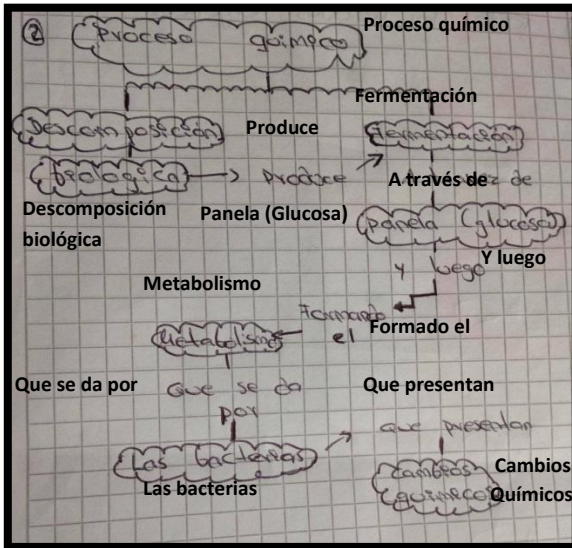 ② Proceso químico Proceso químico
Fermentación
Descomposición Produce Fermentación
biológica → produce A través de vez de
Descomposición biológica Panela (Glucosa) panela (glucosa)
Y luego
y luego
Metabolismo
Formando el Formado el
Metabolismo
Que se da por que se da por Que presentan
que presentan
Las bacterias
Las bacterias
cambios químicos Cambios Químicos